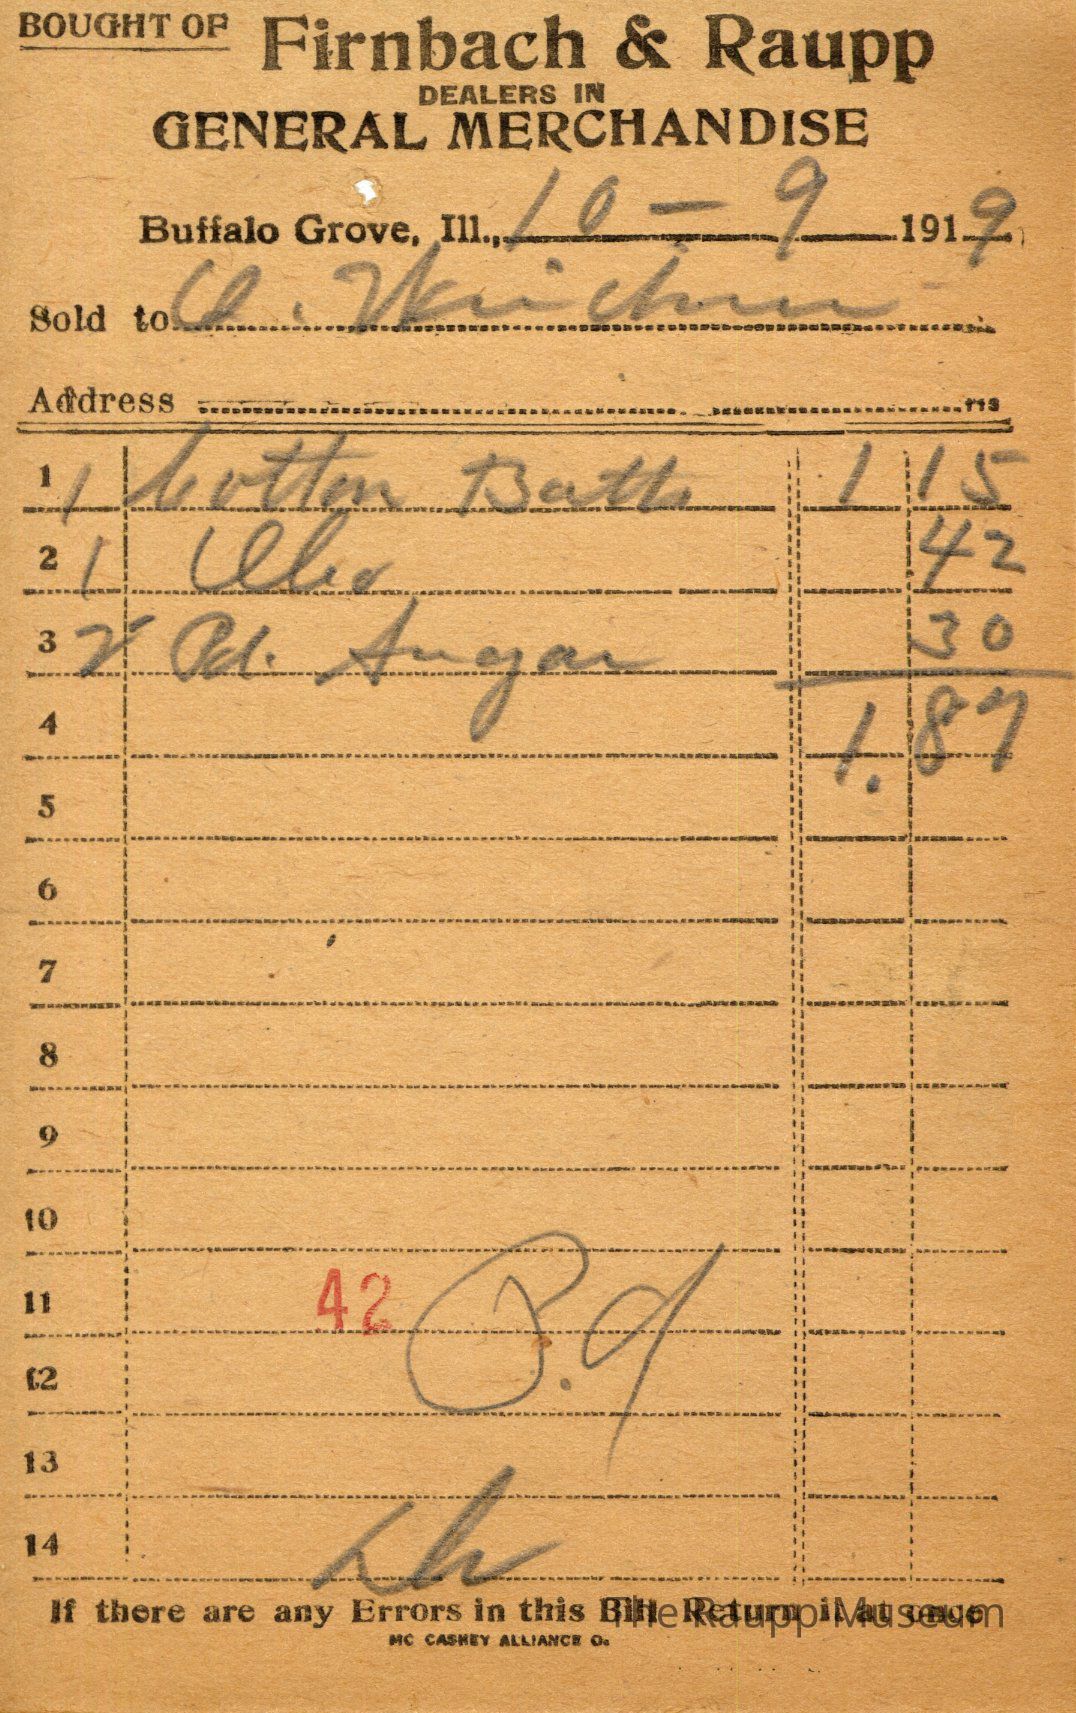 BOUGHT OF Firnbach & Raupp
DEALERS IN
GENERAL MERCHANDISE
Buffalo Grove, Ill., 10 – 9 1919
Sold to
Address 113
1 1 Cotton Batts 1 15
2 1 Oleo 42
3 2 Pd. Sugar 30
4 1.87
5
6
7
8
9
10
11 42 P.d
12
13
14
If there are any Errors in this Bill Return it at once
The Raupp Museum
MC CASKEY ALLIANCE O.